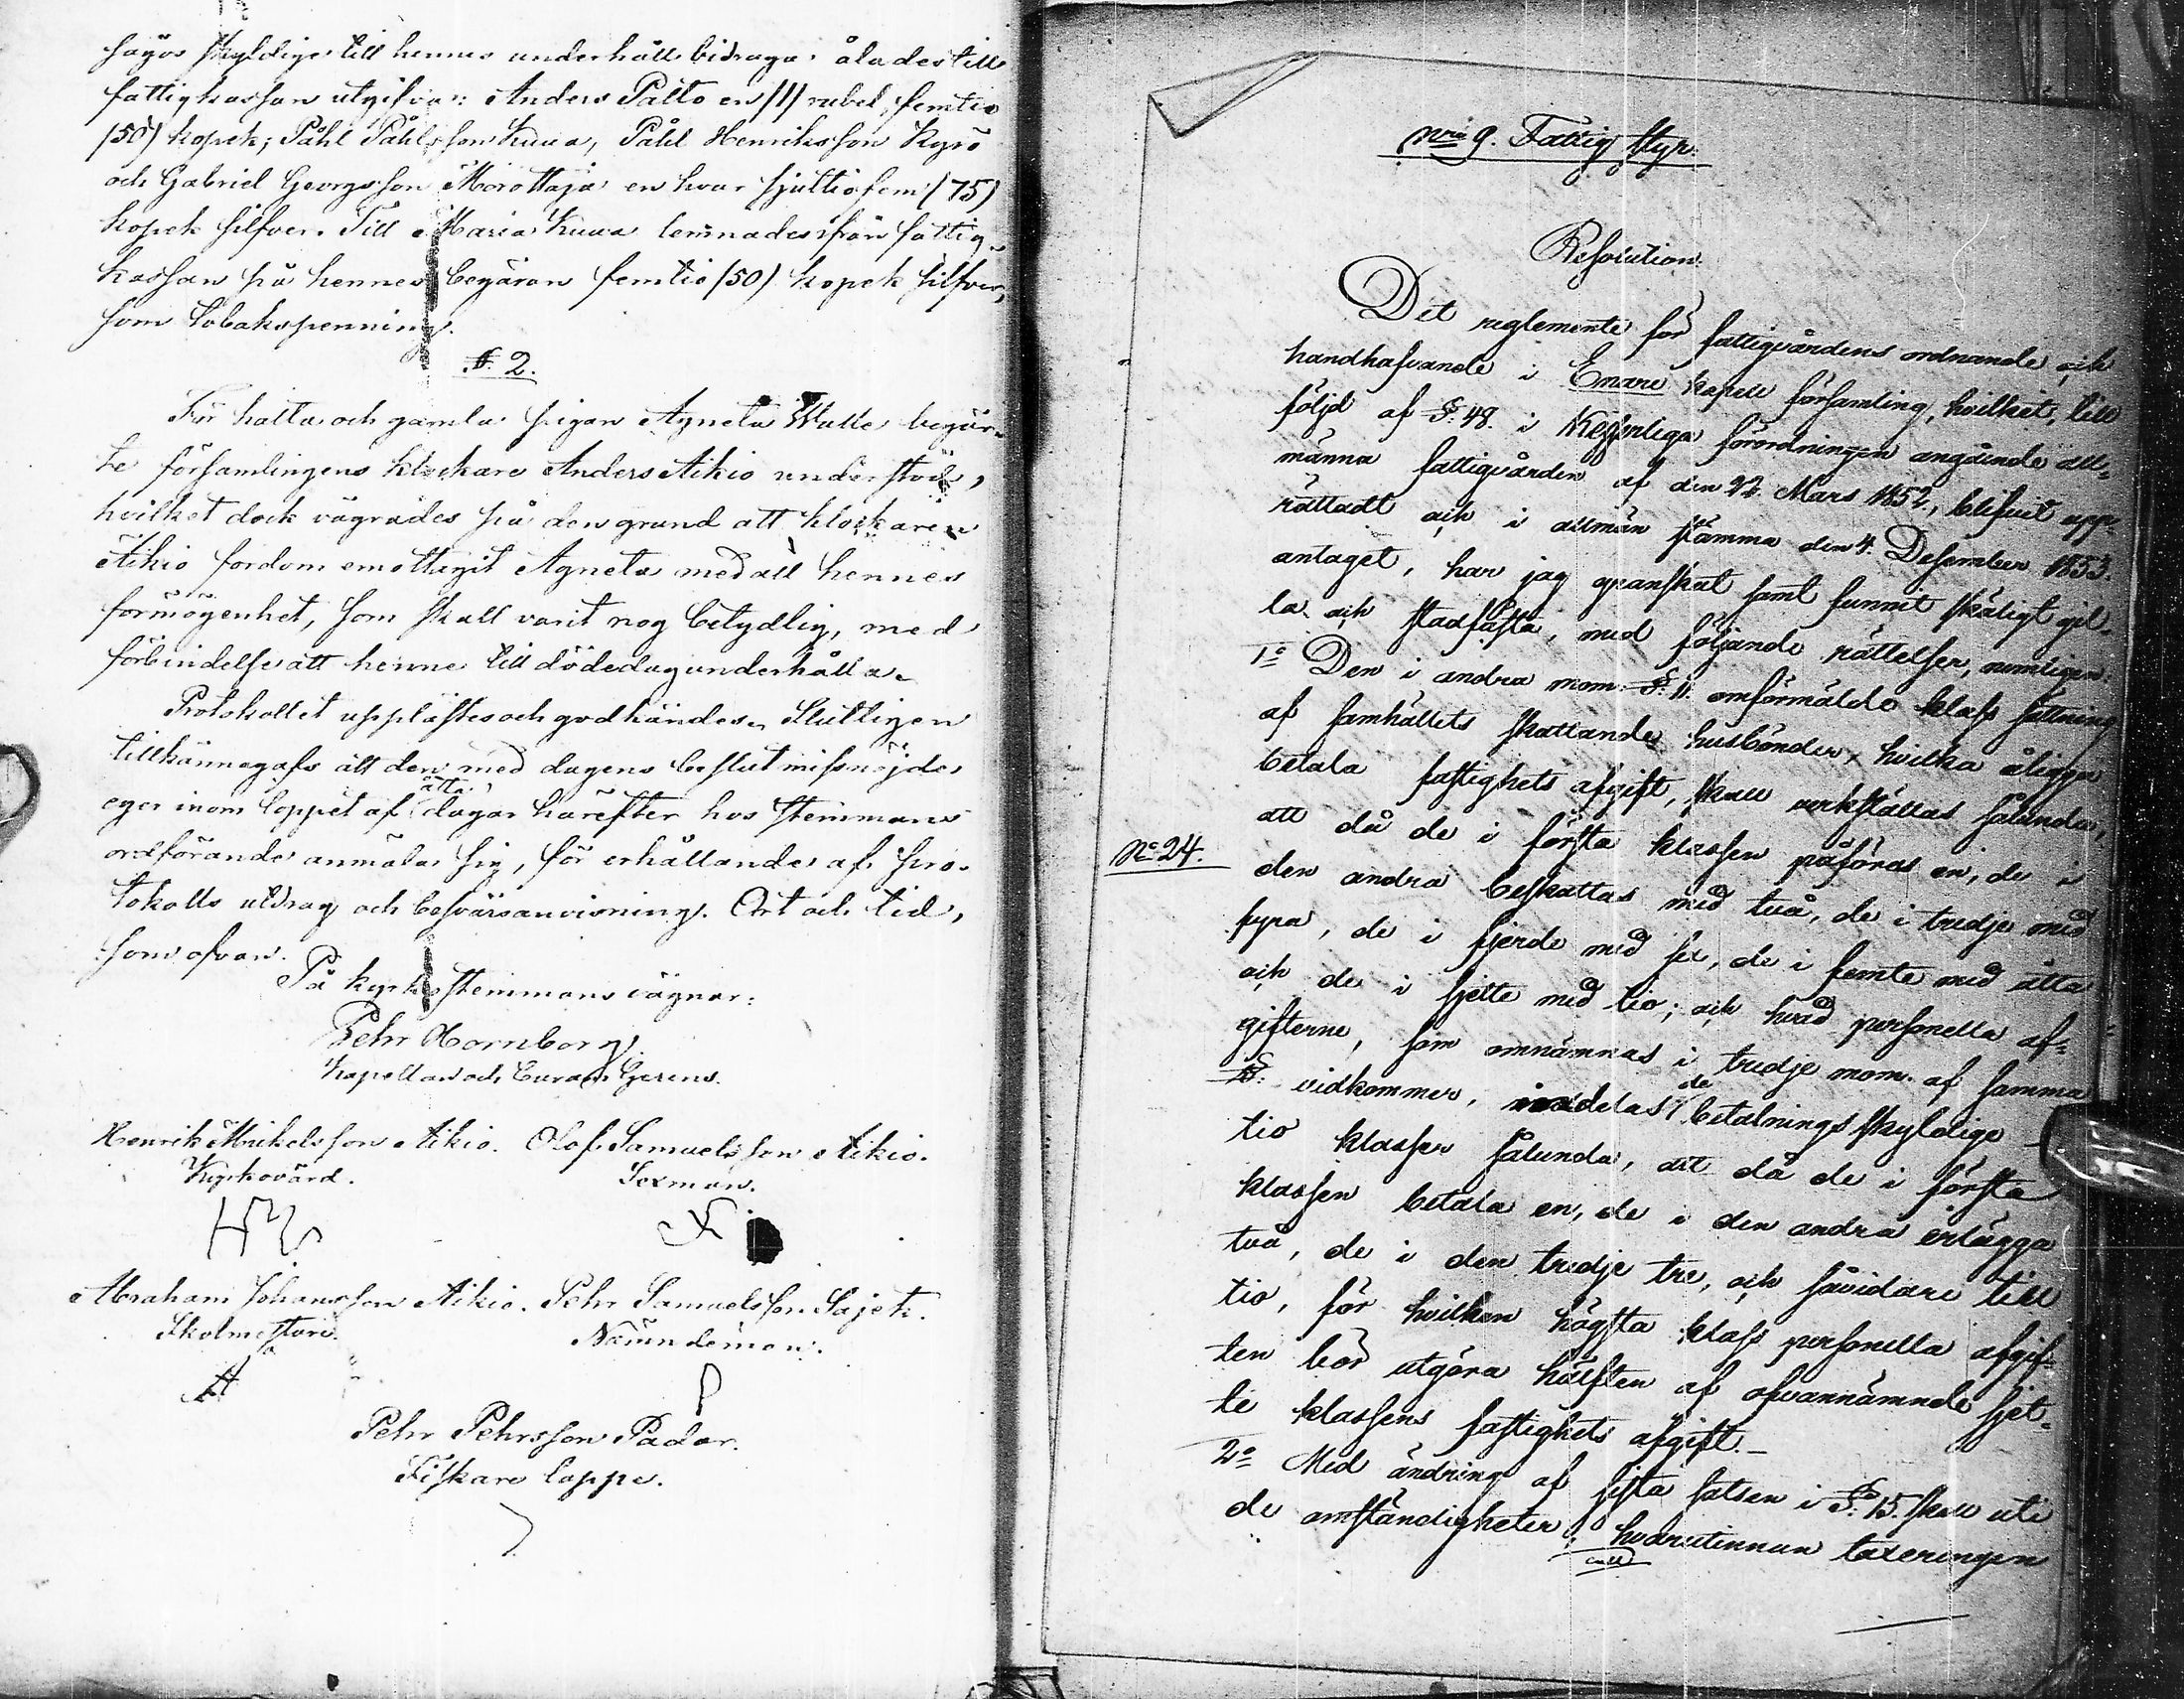 sågos skyldige till hennes underhåll bidraga, ålades till
fattigkassan utgifva: Anders Palto en /1/ rubel, femtio
/50/ kopek; Påhl Påhlsson Kuua, Påhl Henriksson Kyrö
och Gabriel Georgsson Morottaja en hvar sjuttiofem /75/
kopek silfver. Till Maria Kuua lemnades ifrån fattig-
kassan på hennes begäran femtio /50/ kopek silfver,
som tobakspenning.
§. 2.
För halta och gamla pigan Agneta Walle begär-
te församlingens klockare Anders Aikio understöd,
hvilket dock vägrades på den grund att klockaren
Aikio fordom emottagit Agneta med all hennes
förmögenhet, som skall varit nog betydlig, med
förbindelse att henne till dödedag underhålla.
Protokollet upplästes och godkändes. Slutligen
tillkännagafs att den med dagens beslut missnöjde
eger inom loppet af åtta dagar härefter hos stemmans
ordförande anmäla sig, för erhållande af pro-
tokolls utdrag och besvärsanvisning. Ort och tid,
som ofvan.
På kyrkostemmans vägnar:
Pehr Hornborg
Kapellan och Curam Gerens.
Henrik Mikelsson Aikio. Olof Samuelsson Aikio.
Kyrkovärd. Sexman.
Abraham Johansson Aikio. Pehr Samuelsson Sajets.
Skolmästare. Nämndeman.
Pehr Pehrsson Padar.
Fiskare lappe.
N:o 9. Fattig styr.
Resolution.
Det reglemente för fattigvårdens ordnande och
handhafvande i Enare kapell församling, hvilket, till
följd af §. 48. i Kejserliga förordningen angående all-
männa fattigvården af den 22. Mars 1852, blifvit upp-
rättadt och i allmän stämma den 4. Desember 1853.
antaget, har jag granskat samt funnit skäligt gil-
la och stadfästa, med följande rättelser, nemligen:
1:o Den i andra mom: §. 11. omförmälde klass sättning
af samhällets skattande husbönder, hvilka åligga
betala fastighets afgift, skall verkställas sålunda,
att då de i första klassen påföras en, de i
N:o 24.
den andra beskattas med två, de i tredje med
fyra, de i fjerde med sex, de i femte med åtta
och de i sjette med tio; och hvad personella af-
gifterne, som omnämnas i tredje mom. af samma
§. vidkommer, indelas de betalningsskyldige
tio klasser sålunda, att då de i första
klassen betala en, de i den andra erlägga
två, de i den tredje tre, och såvidare till
tio, för hvilken högsta klass personella afgif-
ten bör utgöra hälften af ofvannämnde sjet-
te klassens fastighets afgift.
2:o Med ändring af sista satsen i §. 15. skall uti
de omständigheter, hvarutinnan taxeringen